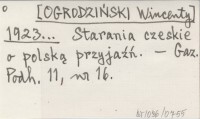 [OGRODZIŃSKI Wincenty]
1923... Starania czeskie
o polską przyjaźń. — Gaz.
Podh. 11, nr 16.